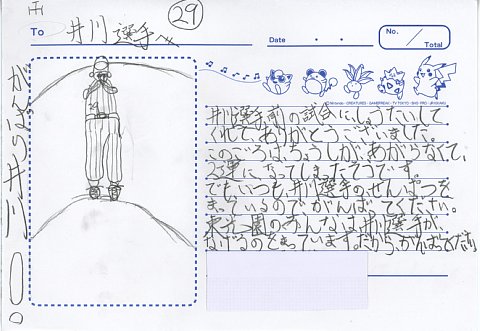 29
To 井川選手へ
Date ・ ・
No.
Total
がんばろう井川!!
井川選手前の試合に、しょうたいして
くれてありがとうございました。
このごろはちょうしがあがらなくて、
2軍になってしまったそうです。
でもいつも、井川選手のせんぱつを
まっているのでがんばってください。
東光園のみんなは井川選手が、
なげるのをまっています。だから、がんばってください